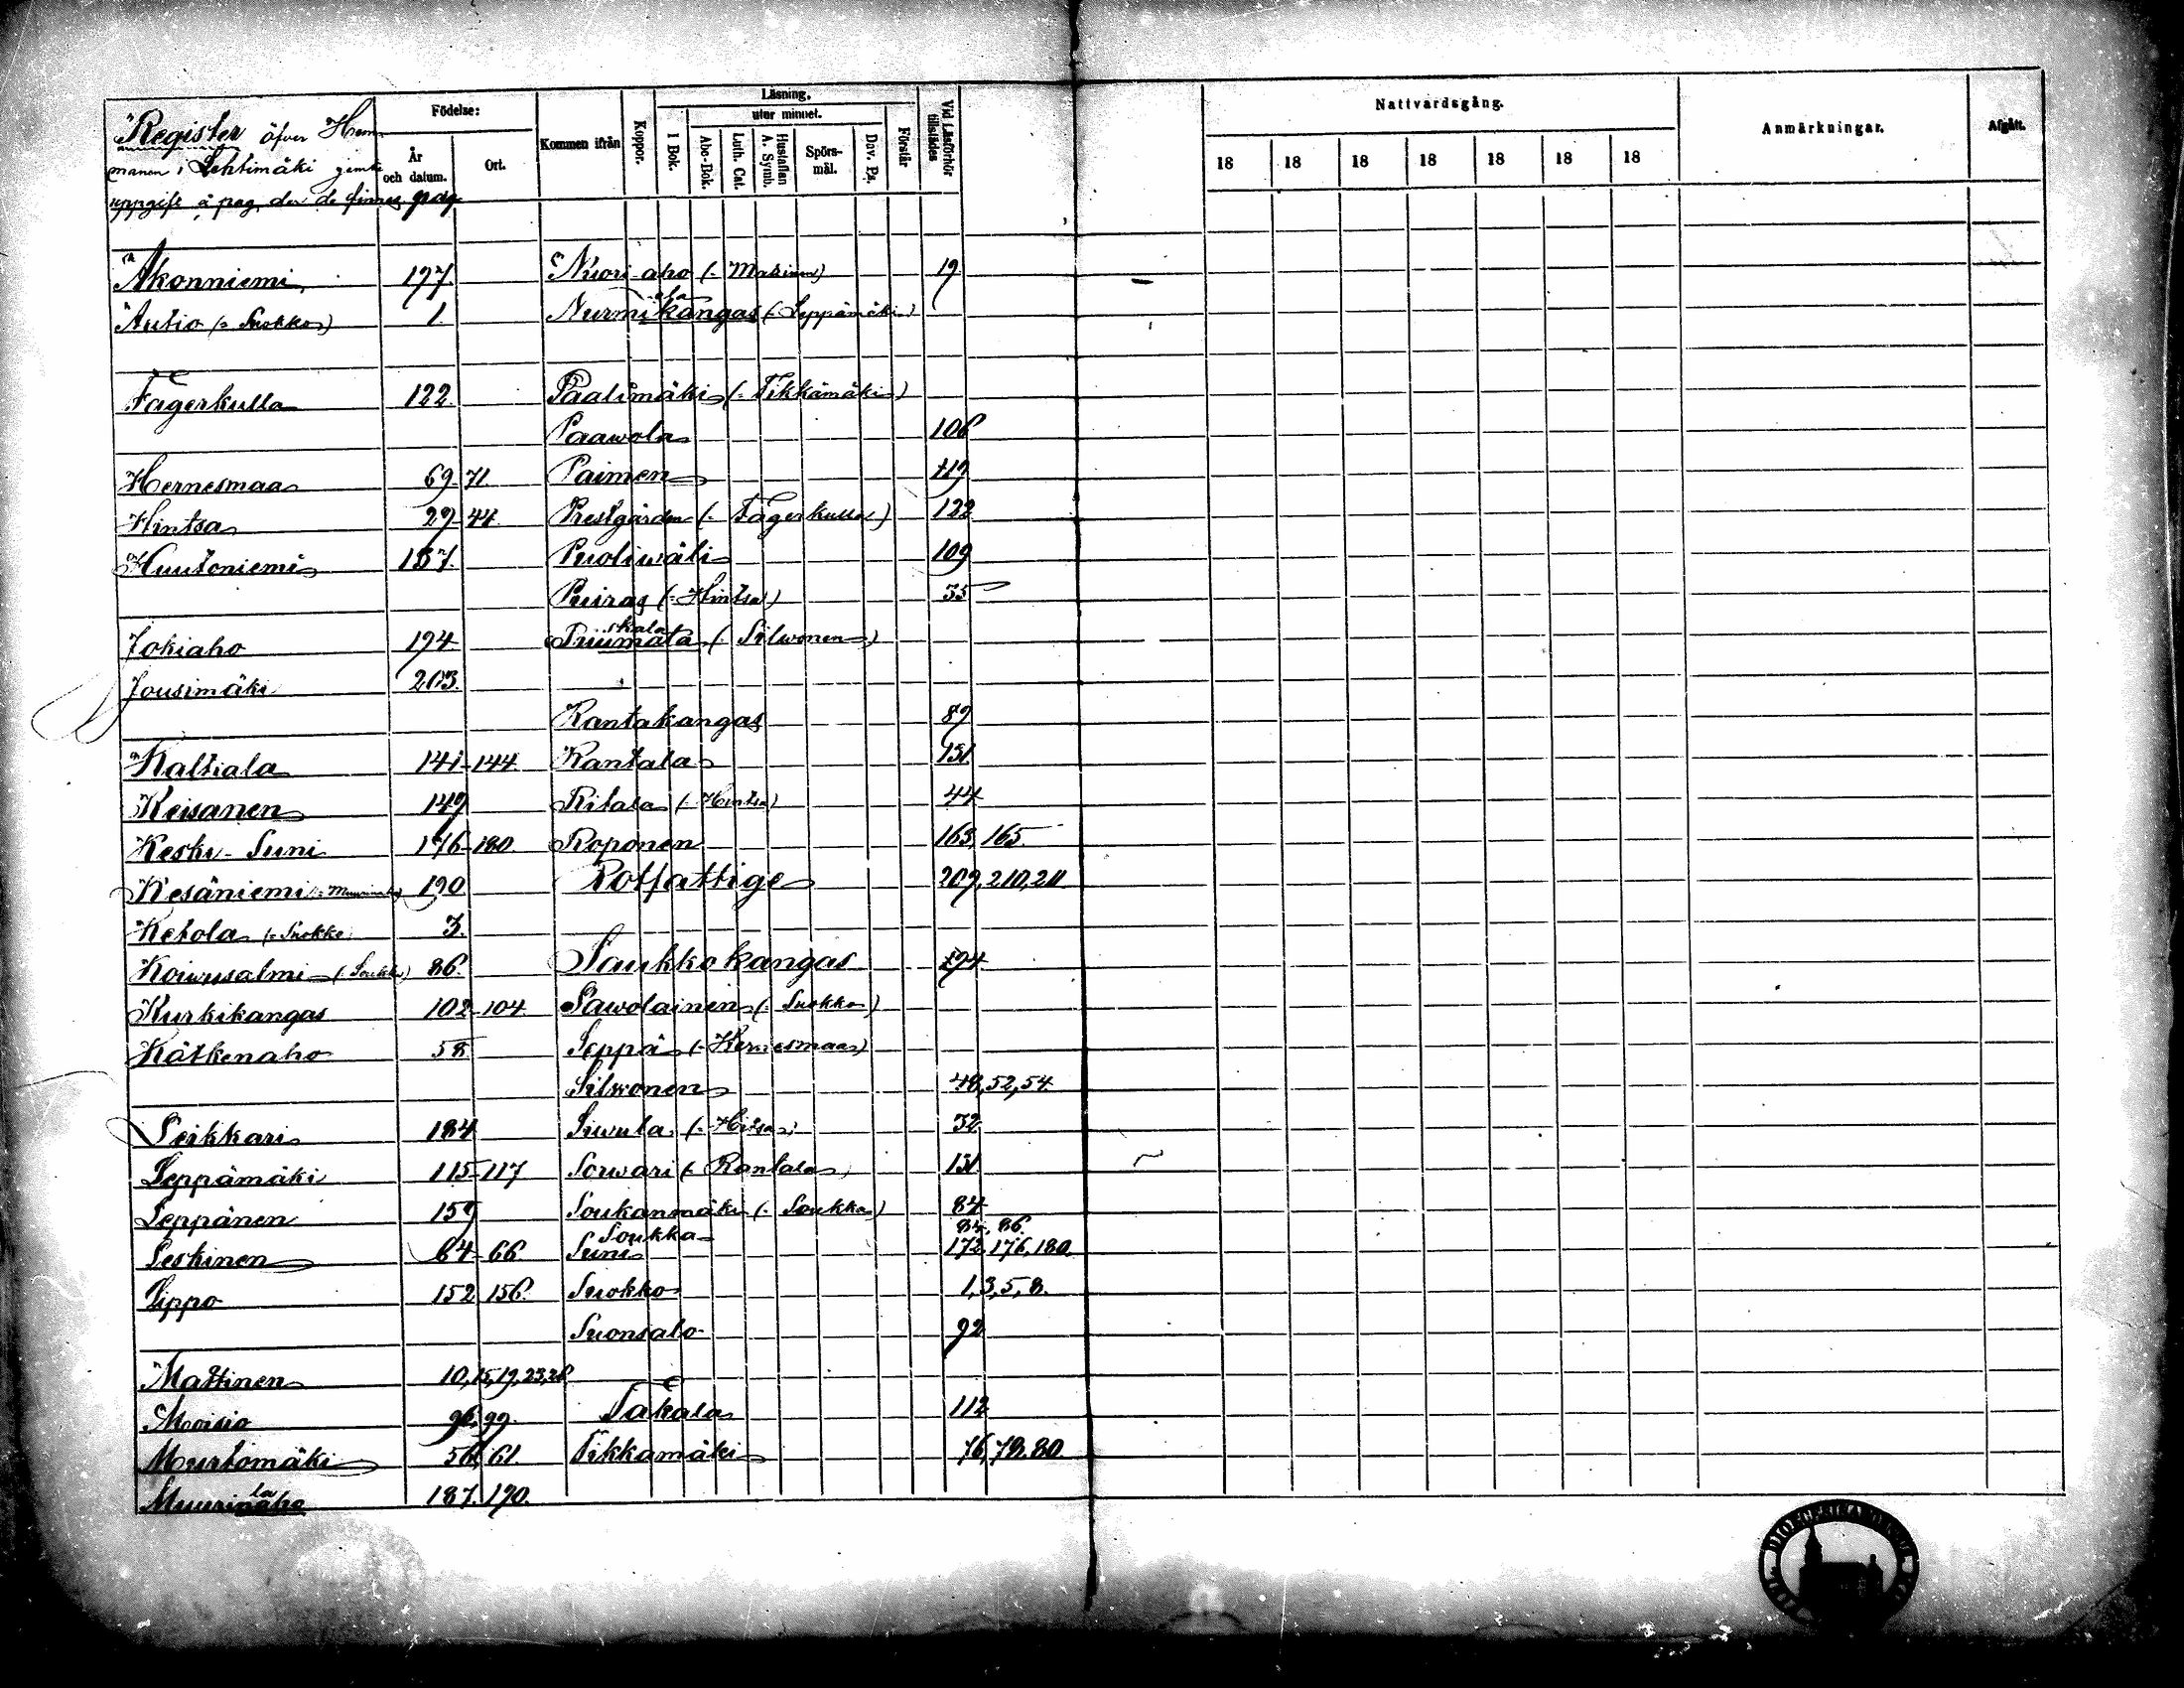 Register öfver Hem-
manen i Lehtimäki jemte
uppgift å pag. der de finnas pag.
Födelse:
År och datum.
Ort.
Kommen ifrån
Koppor.
Läsning.
I Bok.
utur minnet.
Abc-Bok.
Luth. Cat.
Hustaflan A. Symb.
Spörs-mål.
Dav. Ps.
Förstår
Vid Läsförhör tillstädes
Nattvardsgång.
18 18 18 18 18 18 18
Anmärkningar.
Afgått.
Akonniemi 197.
Autio (= Suokko) 1.
Fagerkulla 122.
Hernesmaa 69-71
Hintsa 29-44
Huutoniemi 187.
Jokiaho 194
Jousimäki 203.
Kaltiala 141-144
Keisanen 149
Keski-Suni 176-180.
Kesäniemi 190
Ketola (= Suokko) 3.
Koiwusalmi (= Soukka) 86.
Kurkikangas 102-104
Kätkenaho 58
Leikkari 184
Leppämäki 115-117
Leppänen 159
Leskinen 64-66
Lippo 152 156.
Mattinen 10,15,19,23,26
Moisio 96,99.
Murtomäki 56,61.
Muurinaho la 187.190.
Nuori-aho (= Matinen) 19
Nurmikangas ela (= Leppämäki)
Paalimäki (= Tikkämäki)
Paawola 106
Paimen 119
Prestgården (= Fagerkulla) 122
Puoliwäli 109
Puiras (= Hintsa) 35
Priumata skala (= Silwonen)
Rantakangas 89
Rantala 131
Ritala (= Hintsa) 44
Roponen 163,165.
Rotfattige 209,210,211
Saukkokangas 194
Sawolainen (= Suokko)
Seppä (= Hernesmaa)
Silwonen 48,52,54
Siwula (= Hitsa) 32
Sorwari (= Rantala) 131
Soukanmäki (= Soukka) 84
Soukka 84, 86.
Suni 172,176,180.
Suokko 1,3,5,8.
Suonsalo 92
Takala 112
Tikkamäki 76,78,80.